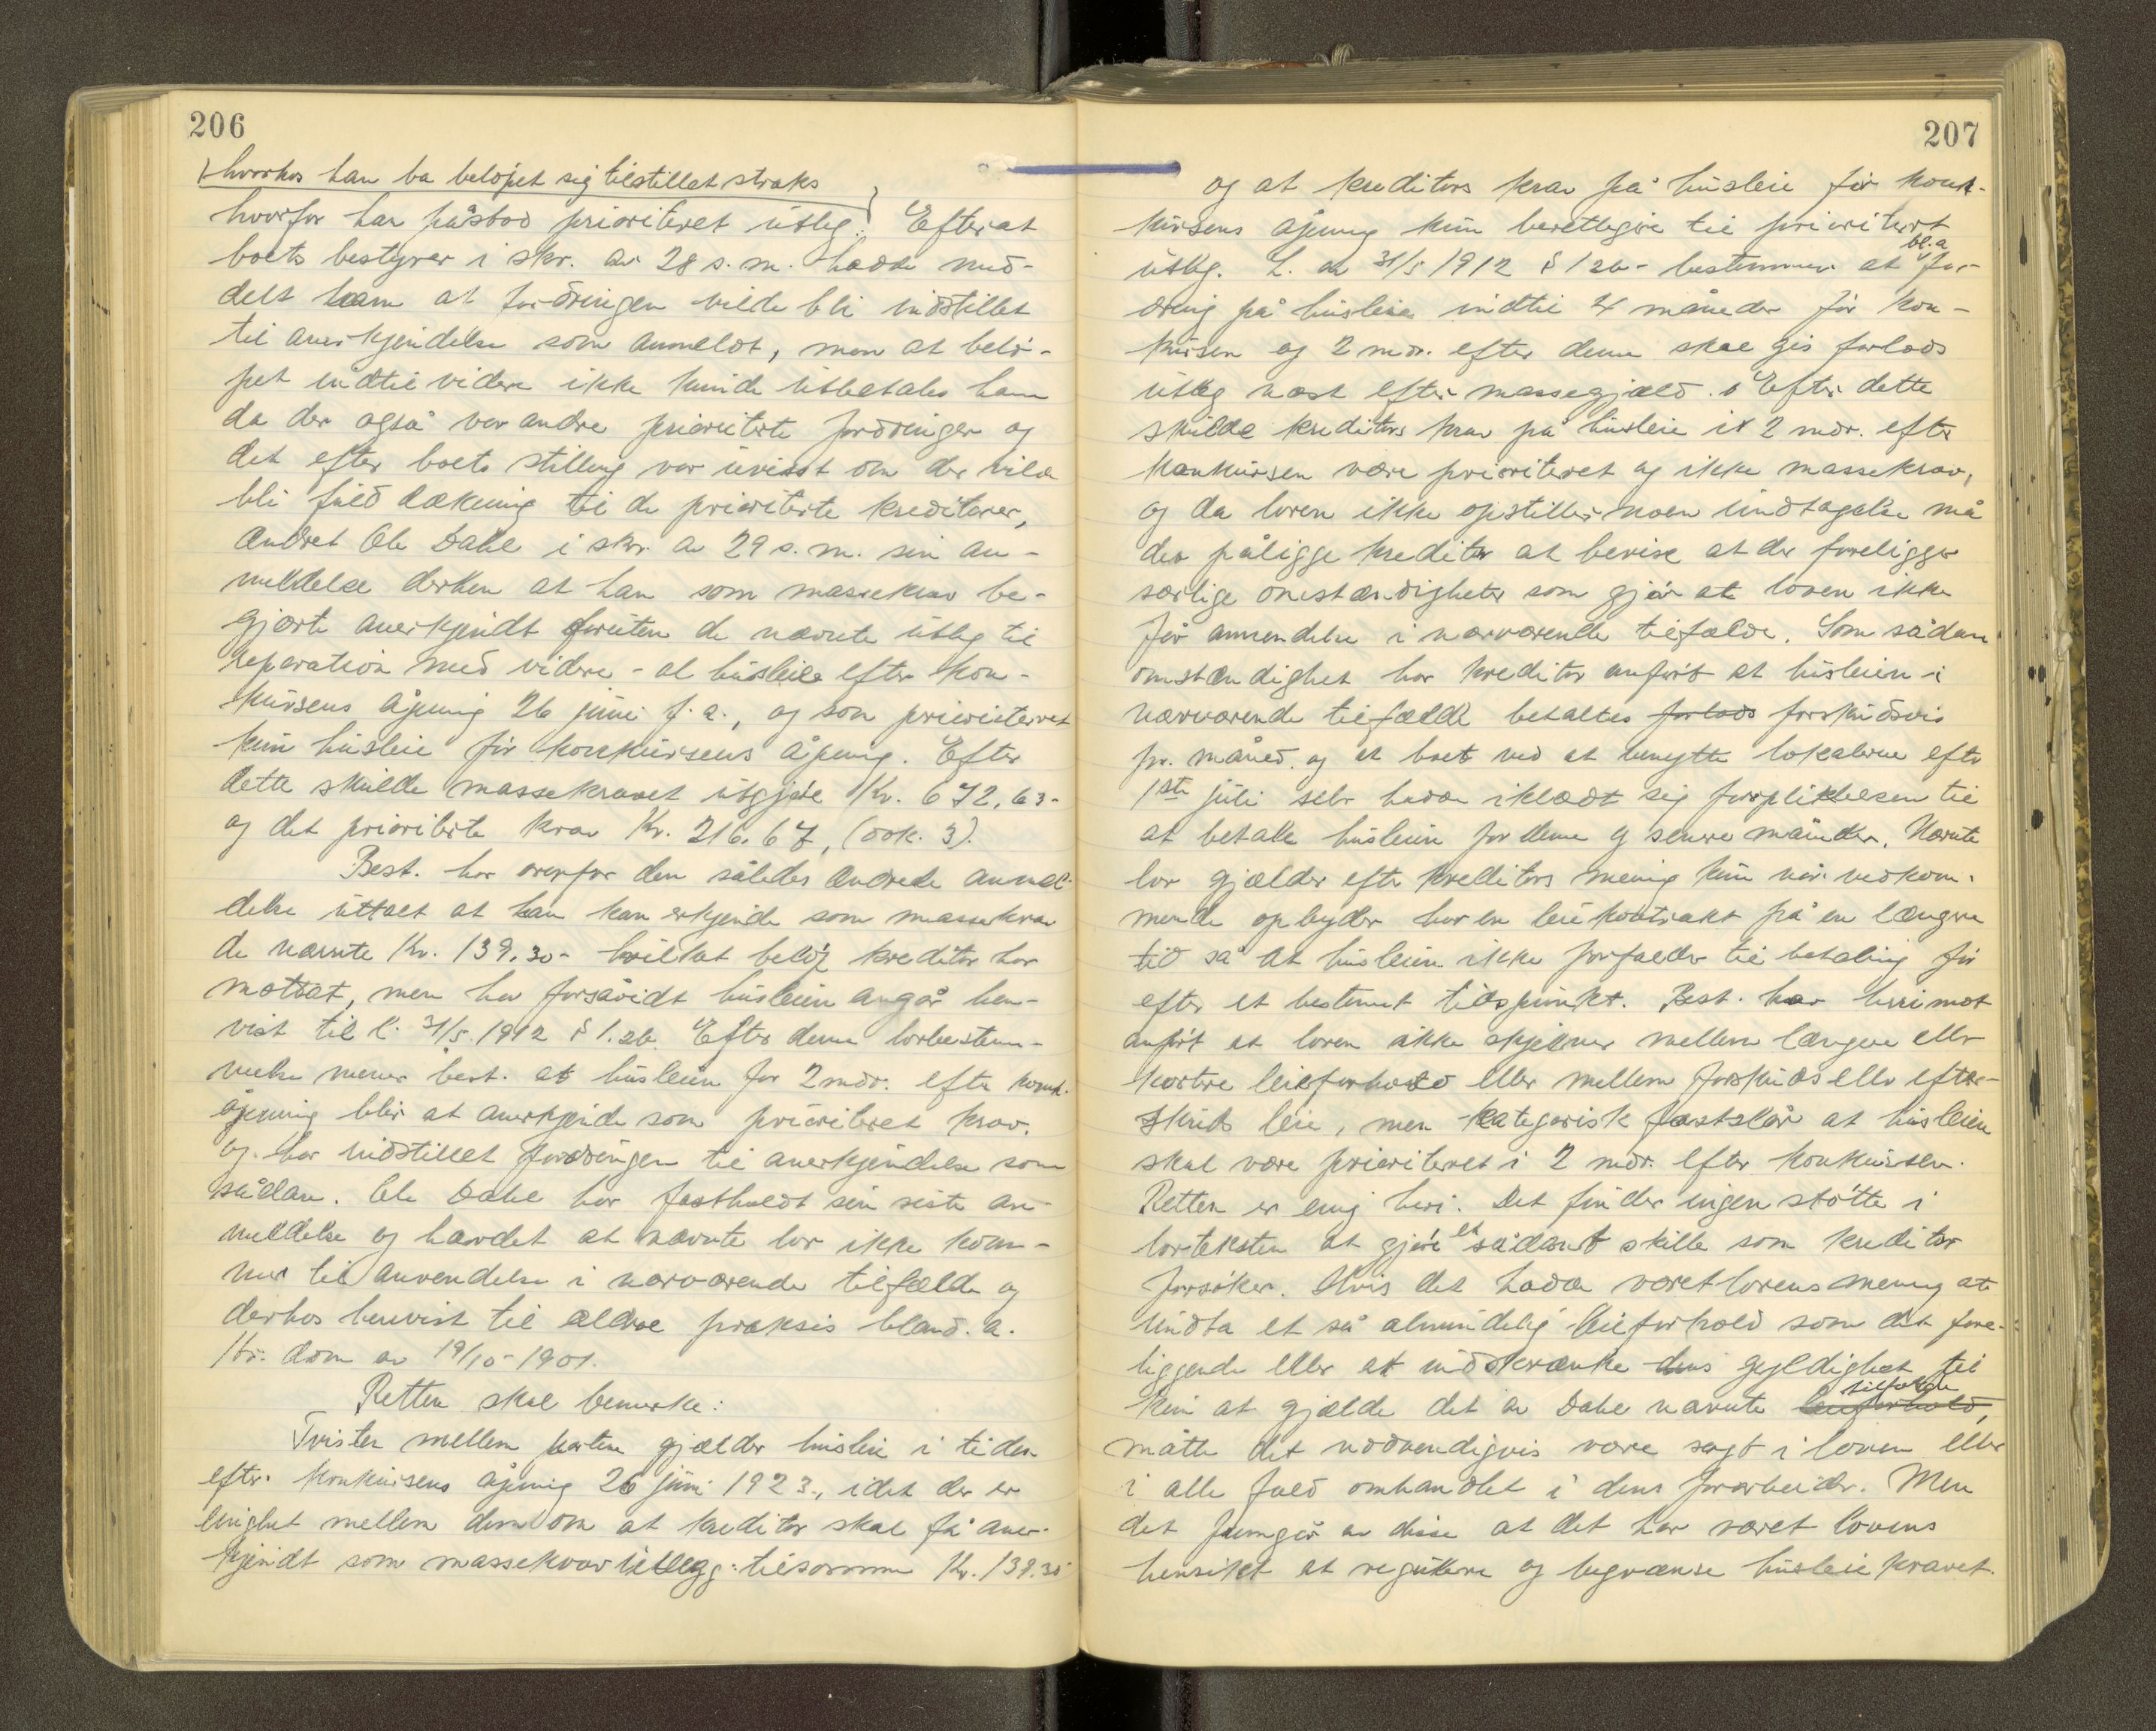 206
hvorhos han ba beløpet sig tilstillet straks
hvorfor han påstod prioriteret utlæg. Efterat
boets bestyrer i skr. av 28 s.m. hadde med-
delt ham at fordringen vilde bli indstillet
til anerkjendelse som anmeldt, men at belø-
pet indtil videre ikke kunde utbetales ham
da der også var andre prioriterte fordringer og
det efter boets stilling var uvisst om der vilde
bli fuld dækning til de prioriterte kreditorer,
ændret Ole Dahl i skr. av 29 s.m. sin an-
meldelse derhen at han som massekrav be-
gjærte anerkjendt foruten de nævnte utlæg til
reparation med videre - al husleie efter kon-
kursens åpning 26 juni f.a., og som prioriteret
kun husleie før konkursens åpning. Efter
dette skulde massekravet utgjøre Kr. 672,63-
og det prioriterte krav Kr. 216.67, (dok. 3).
Best. har overfor den således ændrede anmel-
delse uttalt at han kan erkjende som massekrav
de nævnte Kr. 139.30- hvilket beløp kreditor har
mottat, men har forsåvidt husleien angår hen-
vist til l. 31/5.1912 § 1.2b. Efter denne lovbestem-
melse mener best. at husleien for 2 mdr. efter konk.
åpning blir at anerkjende som prioriteret krav.
og har indstillet fordringen til anerkjendelse som
sådan. Ole Dahl har fastholdt sin siste an-
meldelse og hævdet at nævnte lov ikke kom-
mer til anvendelse i nærværende tilfælde og
derhos henvist til ældre praksis bland. a.
Hr. dom av 19/10-1901.
Retten skal bemerke:
Tvisten mellem partene gjælder husleie i tiden
efter konkursens åpning 26 juni 1923., idet der er
enighet mellem dem om at kreditor skal få aner-
kjendt som massekrav utlegg: tilsammen Kr. 139.30
207
og at kreditors krav på husleie før konk-
kursens åpning kun berettiger til prioritert
utlæg. L. av 31/5 1912 § 1 2b - bestemmer at bl.a for-
dring på husleie indtil 4 måneder før kon-
kursen og 2 mdr. efter denne skal gis forlods
utlæg næst efter massegjæld. Efter dette
skulde kreditors krav på husleie i 2 mdr. efter
konkursen være prioriteret og ikke massekrav,
og da loven ikke opstiller noen undtagelse må
det påligge kreditor at bevise at der foreligger
særlige omstændigheter som gjør at loven ikke
får anvendelse i nærværende tilfælde. Som sådan
omstændighet har kreditor anført at husleien i
nærværende tilfælde betaltes forlods forskudsvis
pr. måned. og at boet ved at benytte lokalerne efter
1ste juli selv hadde iklædt sig forpliktelsen til
at betale husleien for denne og senere måneder. Nævnte
lov gjælder efter kreditors mening kun når vedkom-
mende opbyder har en leiekontrakt på en længere
tid så at husleien ikke forfalder til betaling før
efter et bestemt tidspunkt. Best. har herimot
anført at loven ikke skjelner mellem længere eller
kortere leieforhold eller mellem forskuds eller efter-
skuds leie, men kategorisk fastslår at husleien
skal være prioriteret i 2 mdr. efter konkursen.
Retten er enig heri. Det finder ingen støtte i
lovteksten at gjøre et sådant skille som kreditor
forsøker. Hvis det hadde været lovens mening at
undta et så almindelig leieforhold som det fore-
liggende eller at indskrænke dens gyldighet til
kun at gjælde det av Dahl nævnte leieforhold, tilfælde
måtte det nødvendigvis være sagt i loven eller
i alle fald omhandlet i dens forarbeider. Men
det fremgår av disse at det har været lovens
hensikt at regulere og begrænse husleiekravet.